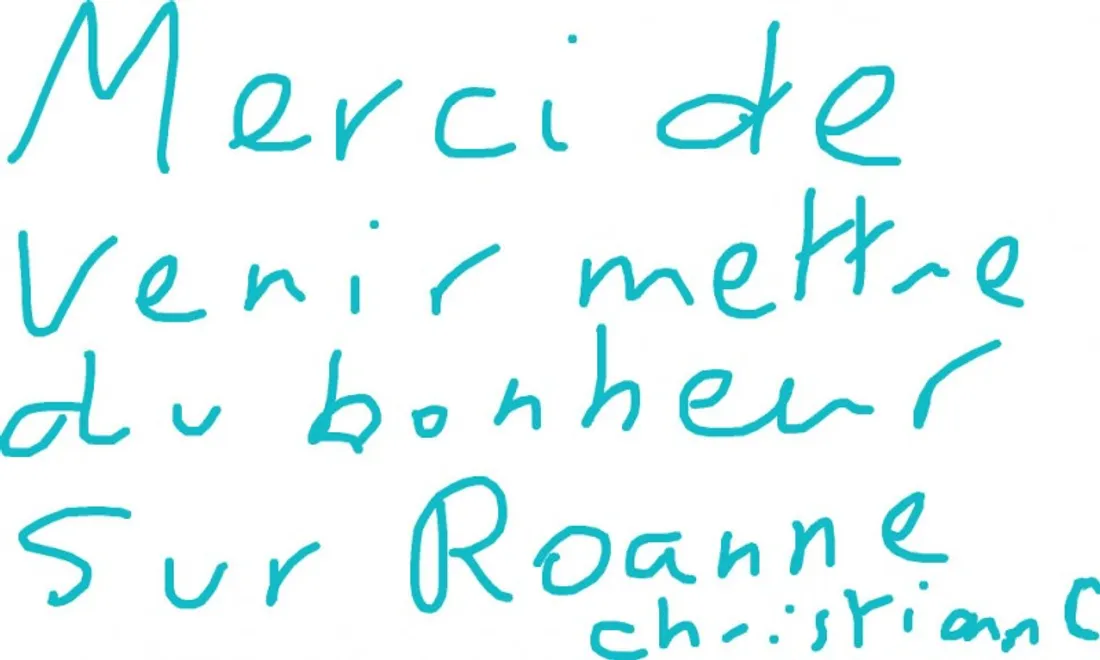 Merci de
venir mettre
du bonheur
Sur Roanne
christiann C